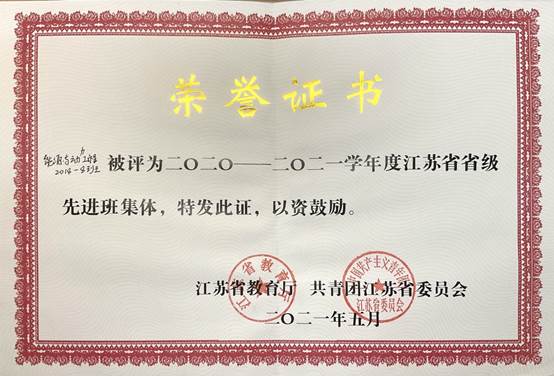 荣誉证书
能源与动力工程
2018-4班 被评为二〇二〇——二〇二一学年度江苏省省级
先进班集体，特发此证，以资鼓励。
江苏省教育厅 共青团江苏省委员会
二〇二一年五月
江苏省教育厅
中国共产主义青年团
江苏省委员会